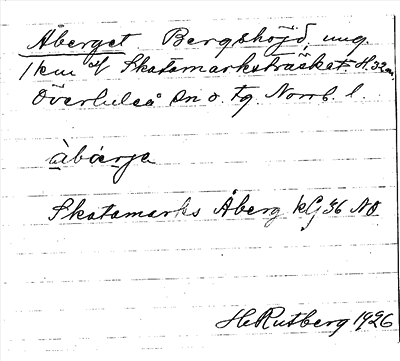 Åberget Bergshöjd, ung.
1 km af Skatamarksträsket. H. 32 m.
Överluleå sn o. tg. Norrb. l.
åbärje
Skatamarks Åberg kG 36 NO
H. Rutberg 1926